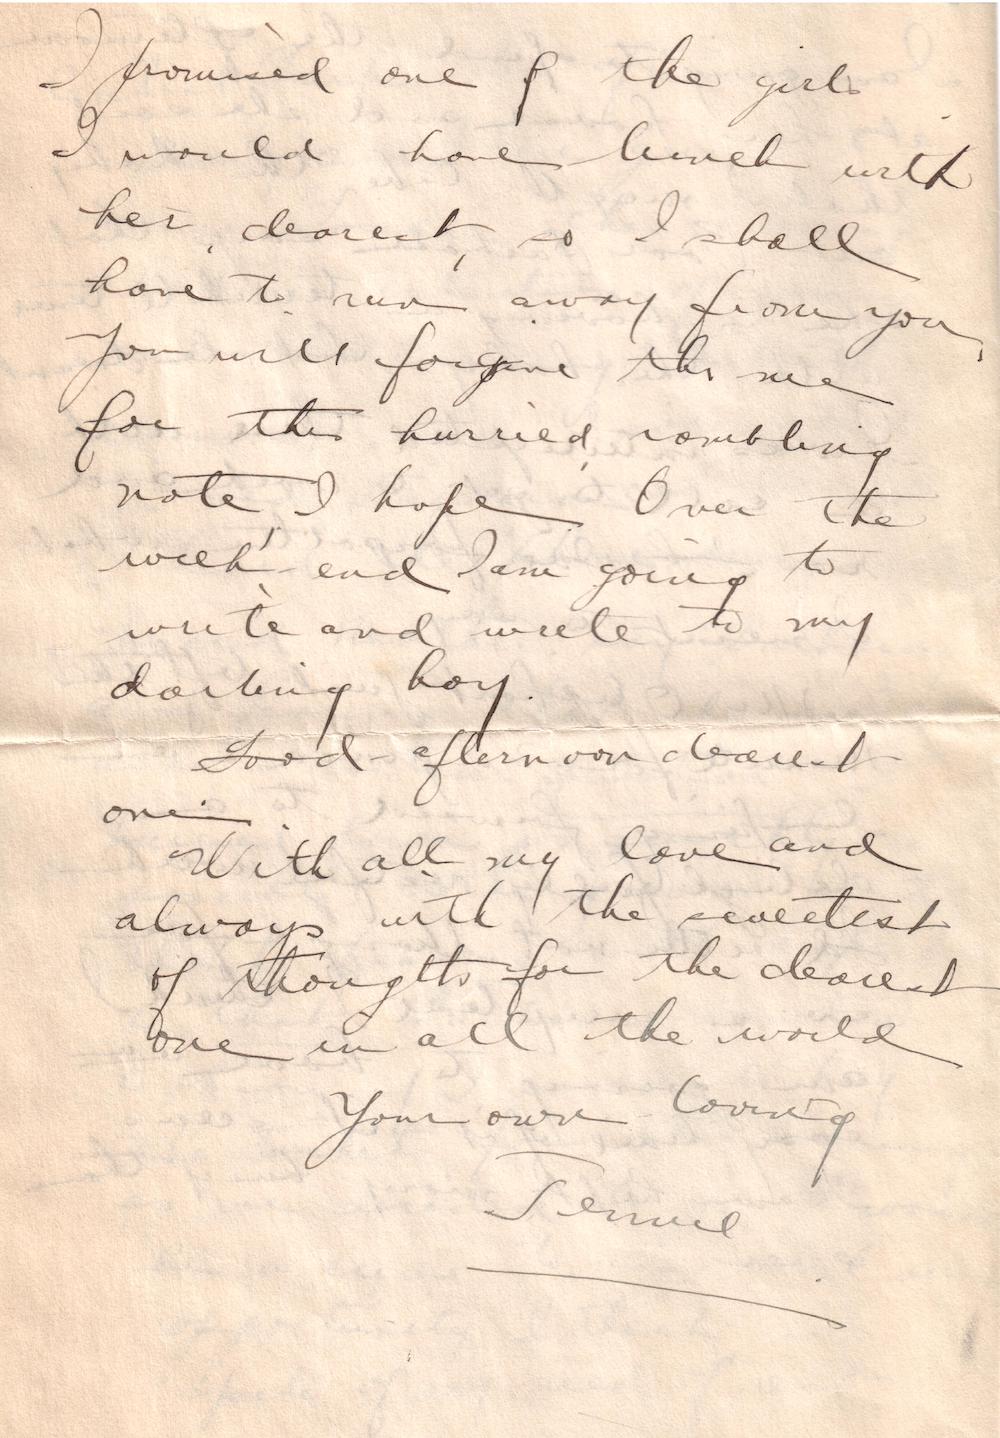 I promised one of the girls
I would have lunch with
her, dearest, so I shall
have to run away from you,
You will forgive the me
for this hurried, rambling
note, I hope. Over the
week-end I am going to
write and write to my
darling boy.
Good-afternoon dearest
one.
With all my love and
always with the sweetest
of thoughts for the dearest
one in all the world
Your own loving